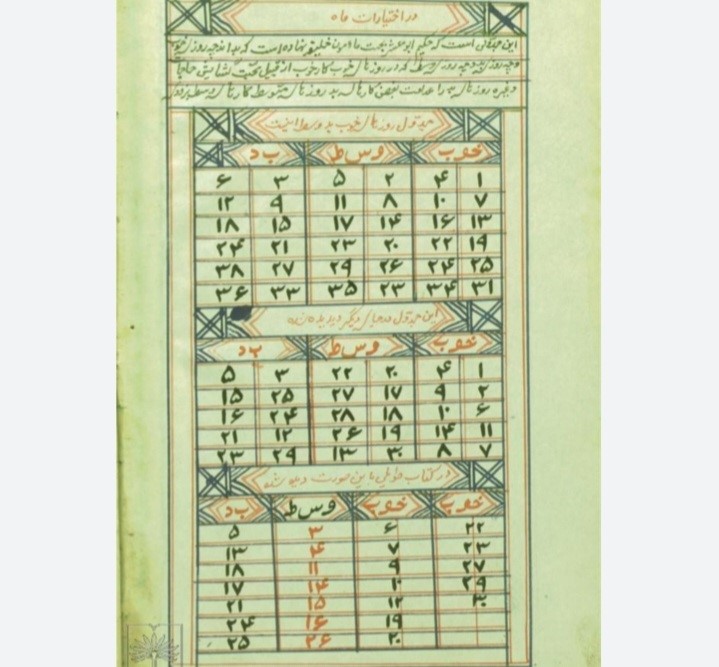 در اختیارات ماه
این جدولی است که حکیم ابومعشر بجهت مامون خلیفه نهاده است که بداند چه روز خوب
و چه روز بد و چه روز وسط که در روز های خوب کار خوب از قبیل محبت گشایش حاجات
و غیره روز های بد را عداوت بغض کارهای بد روز های متوسط کارهای وسط
جدول روز های خوب بد وسط اینست
خوب وسط بد
۱ ۴ ۲ ۵ ۳ ۶
۷ ۱۰ ۸ ۱۱ ۹ ۱۲
۱۳ ۱۶ ۱۴ ۱۷ ۱۵ ۱۸
۱۹ ۲۲ ۲۰ ۲۳ ۲۱ ۲۴
۲۵ ۲۴ ۲۶ ۲۹ ۲۷ ۳۸
۳۱ ۳۴ ۲۳ ۳۵ ۳۳ ۳۶
این جدول در جای دیگر دیده شده
خوب وسط بد
۱ ۴ ۲۰ ۲۲ ۳ ۵
۲ ۹ ۱۷ ۲۷ ۲۵ ۱۵
۶ ۱۰ ۱۸ ۲۸ ۲۴ ۱۶
۱۱ ۱۴ ۱۹ ۲۶ ۱۲ ۲۱
۷ ۸ ۳۰ ۱۳ ۲۹ ۲۳
در کتاب باین صورت دیده شده
خوب خوب وسط بد
۲۲ ۶ ۳ ۵
۲۳ ۷ ۴ ۱۳
۲۷ ۹ ۱۱ ۱۸
۲۹ ۱۰ ۱۴ ۱۷
۳۰ ۱۲ ۱۵ ۲۱
۱۹ ۱۶ ۲۴
۲۰ ۲۶ ۲۵